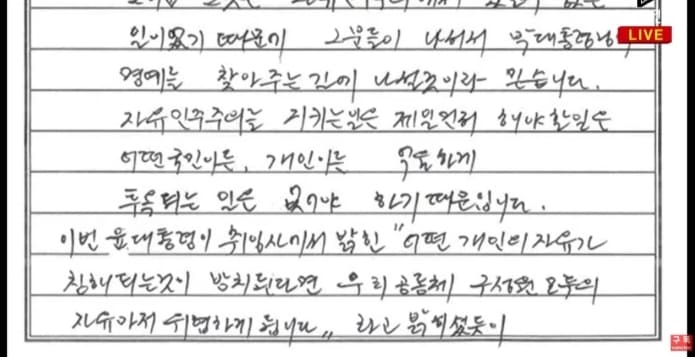 일이었기 때문에 그분들이 나서서 박대통령님
LIVE
명예를 찾아주는 길에 나설것이라 믿습니다.
자유민주주의를 지키는일은 제일먼저 해야할일은
어떤국민이든, 개인이든 억울하게
투옥되는 일은 없어야 하기 때문입니다.
이번 윤대통령이 취임사에서 밝힌 "어떤 개인의 자유가
침해되는것이 방치된다면 우리 공동체 구성원 모두의
자유마저 위협하게 됩니다" 라고 밝히셨듯이
구독